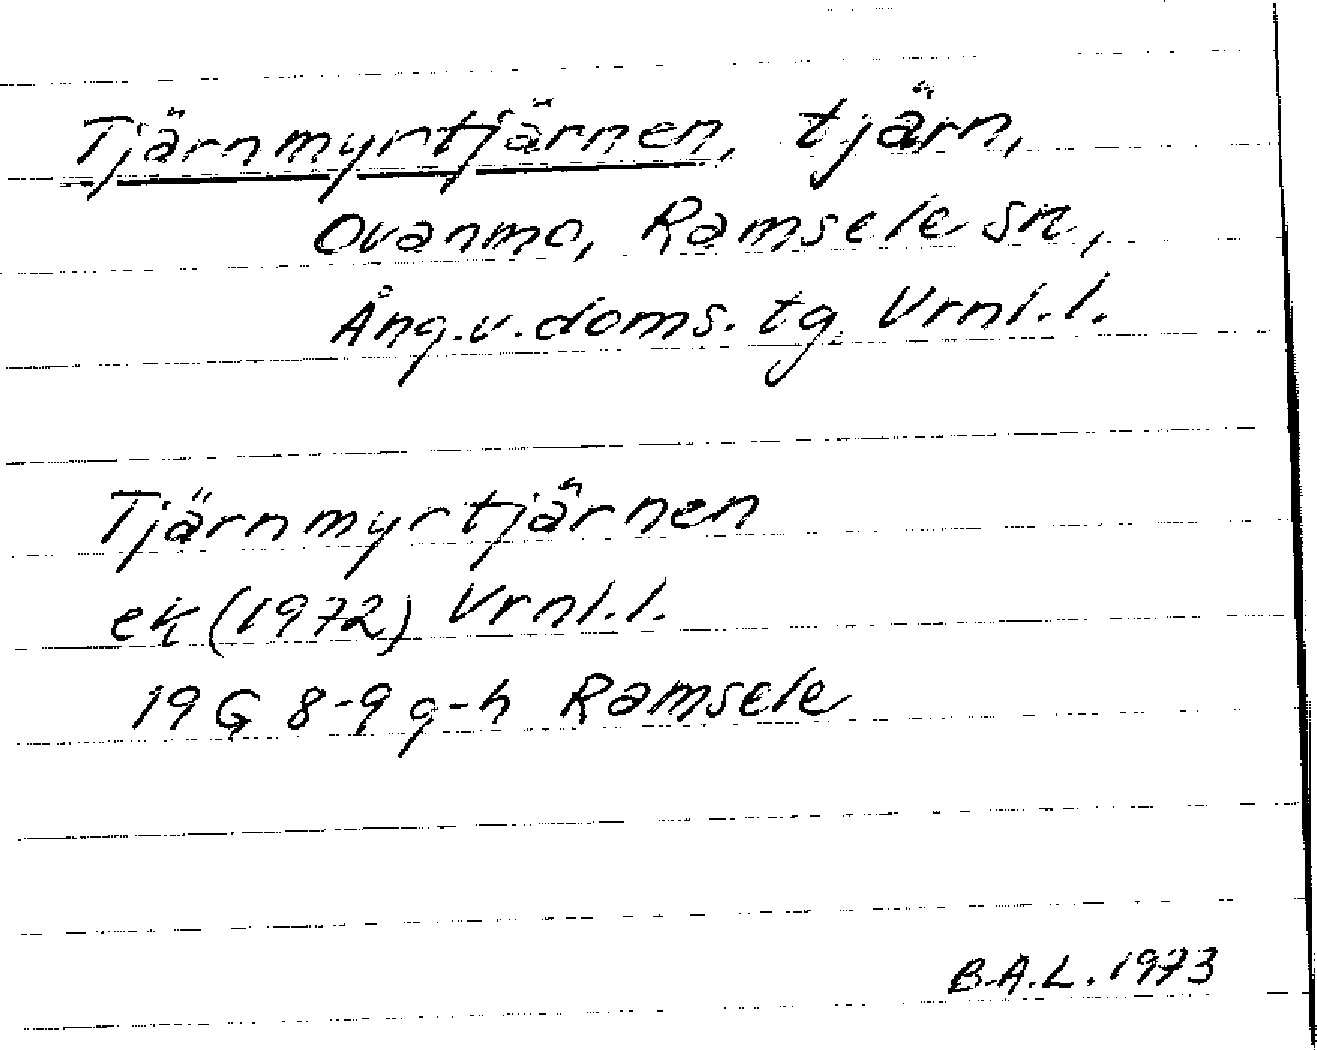 Tjärnmyrtjärnen, tjärn,
Ovanmo, Ramsele sn,
Ång.v.doms.tg Vrnl.l.
Tjärnmyrtjärnen
ek (1972) Vrnl.l.
19G 8-9 g-h Ramsele
B.A.L. 1973